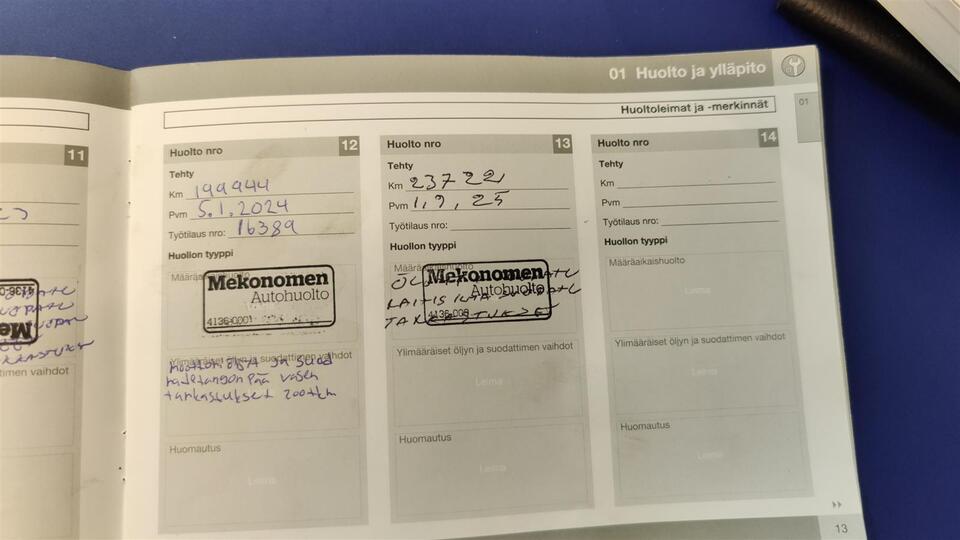 01 Huolto ja ylläpito
Huoltoleimat ja -merkinnät
01
11
4136-0
Me
timen vaihdot
Huolto nro 12
Tehty
Km 199944
Pvm 5.1.2024
Työtilaus nro: 16389
Huollon tyyppi
Määräaikaishuolto
Mekonomen
Autohuolto
4136-0001
Ylimääräiset öljyn ja suodattimen vaihdot
moottoriöljy ja suod
raidetangon pää vasen
tarkastukset 200tkm
Huomautus
Leima
Huolto nro 13
Tehty
Km 23722
Pvm 1,9, 25
Työtilaus nro:
Huollon tyyppi
Määräaikaishuolto
Mekonomen
Autohuolto
4136-000
RAITIS ILMA SUODATE
Ylimääräiset öljyn ja suodattimen vaihdot
Leima
Huomautus
Leima
Huolto nro 14
Tehty
Km
Pvm
Työtilaus nro:
Huollon tyyppi
Määräaikaishuolto
Leima
Ylimääräiset öljyn ja suodattimen vaihdot
Leima
Huomautus
Leima
13